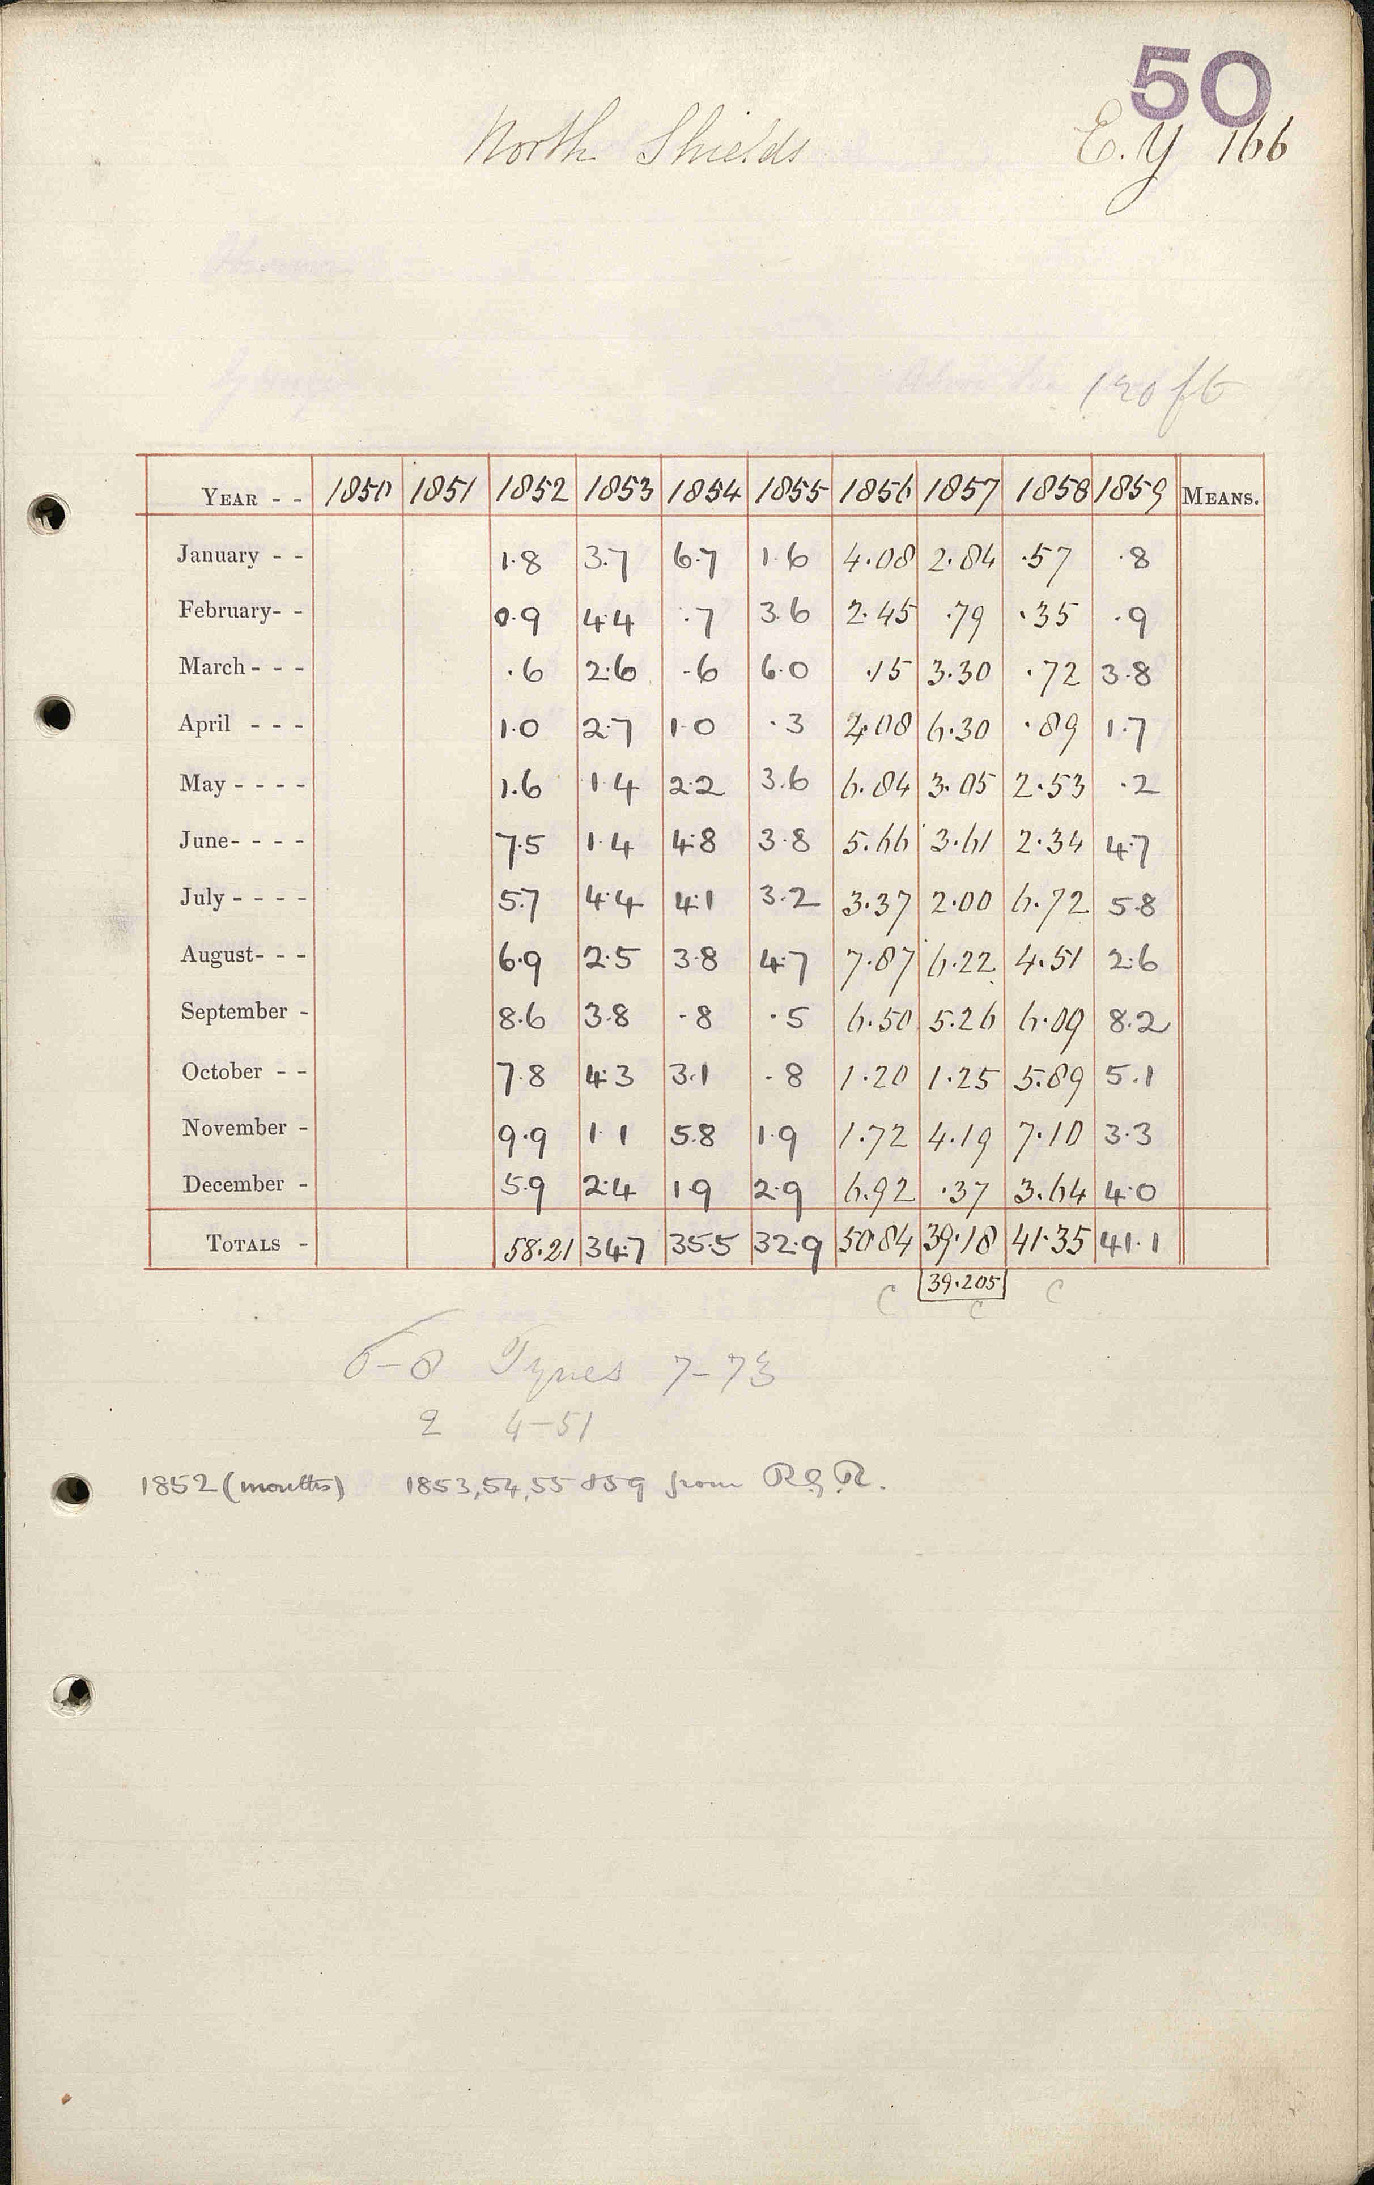 50
North Shields E.Y 166
120 ft
YEAR - - 1850 1851 1852 1853 1854 1855 1856 1857 1858 1859 MEANS.
January - - 1.8 3.7 6.7 1.6 4.08 2.84 .57 .8
February- - 0.9 4.4 .7 3.6 2.45 .79 .35 .9
March - - - .6 2.6 .6 6.0 .15 3.30 .72 3.8
April - - - 1.0 2.7 1.0 .3 4.08 6.30 .89 1.7
May - - - - 1.6 1.4 2.2 3.6 6.84 3.05 2.53 .2
June- - - - 7.5 1.4 4.8 3.8 5.66 3.61 2.34 4.7
July - - - - 5.7 4.4 4.1 3.2 3.37 2.00 6.72 5.8
August- - - 6.9 2.5 3.8 4.7 7.87 6.22 4.51 2.6
September - 8.6 3.8 .8 .5 6.50 5.26 6.09 8.2
October - - 7.8 4.3 3.1 .8 1.20 1.25 5.89 5.1
November - 9.9 1.1 5.8 1.9 1.72 4.19 7.10 3.3
December - 5.9 2.4 1.9 2.9 6.92 .37 3.64 4.0
TOTALS - 58.21 34.7 35.5 32.9 50.84 39.18 41.35 41.1
39.205
C C C
6-8 Tynes 7-73
2 4-51
1852 (months) 1853,54,55 &59 from R.G.R.